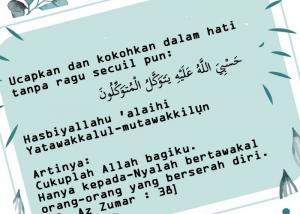 Ucapkan dan kokohkan dalam hati
tanpa ragu secuil pun:
حَسْبِيَ اللَّهُ عَلَيْهِ يَتَوَكَّلُ الْمُتَوَكِّلُونَ
Hasbiyallahu 'alaihi
Yatawakkalul-mutawakkilụn
Artinya:
Cukuplah Allah bagiku.
Hanya kepada-Nyalah bertawakal
orang-orang yang berserah diri.
Az Zumar : 38]